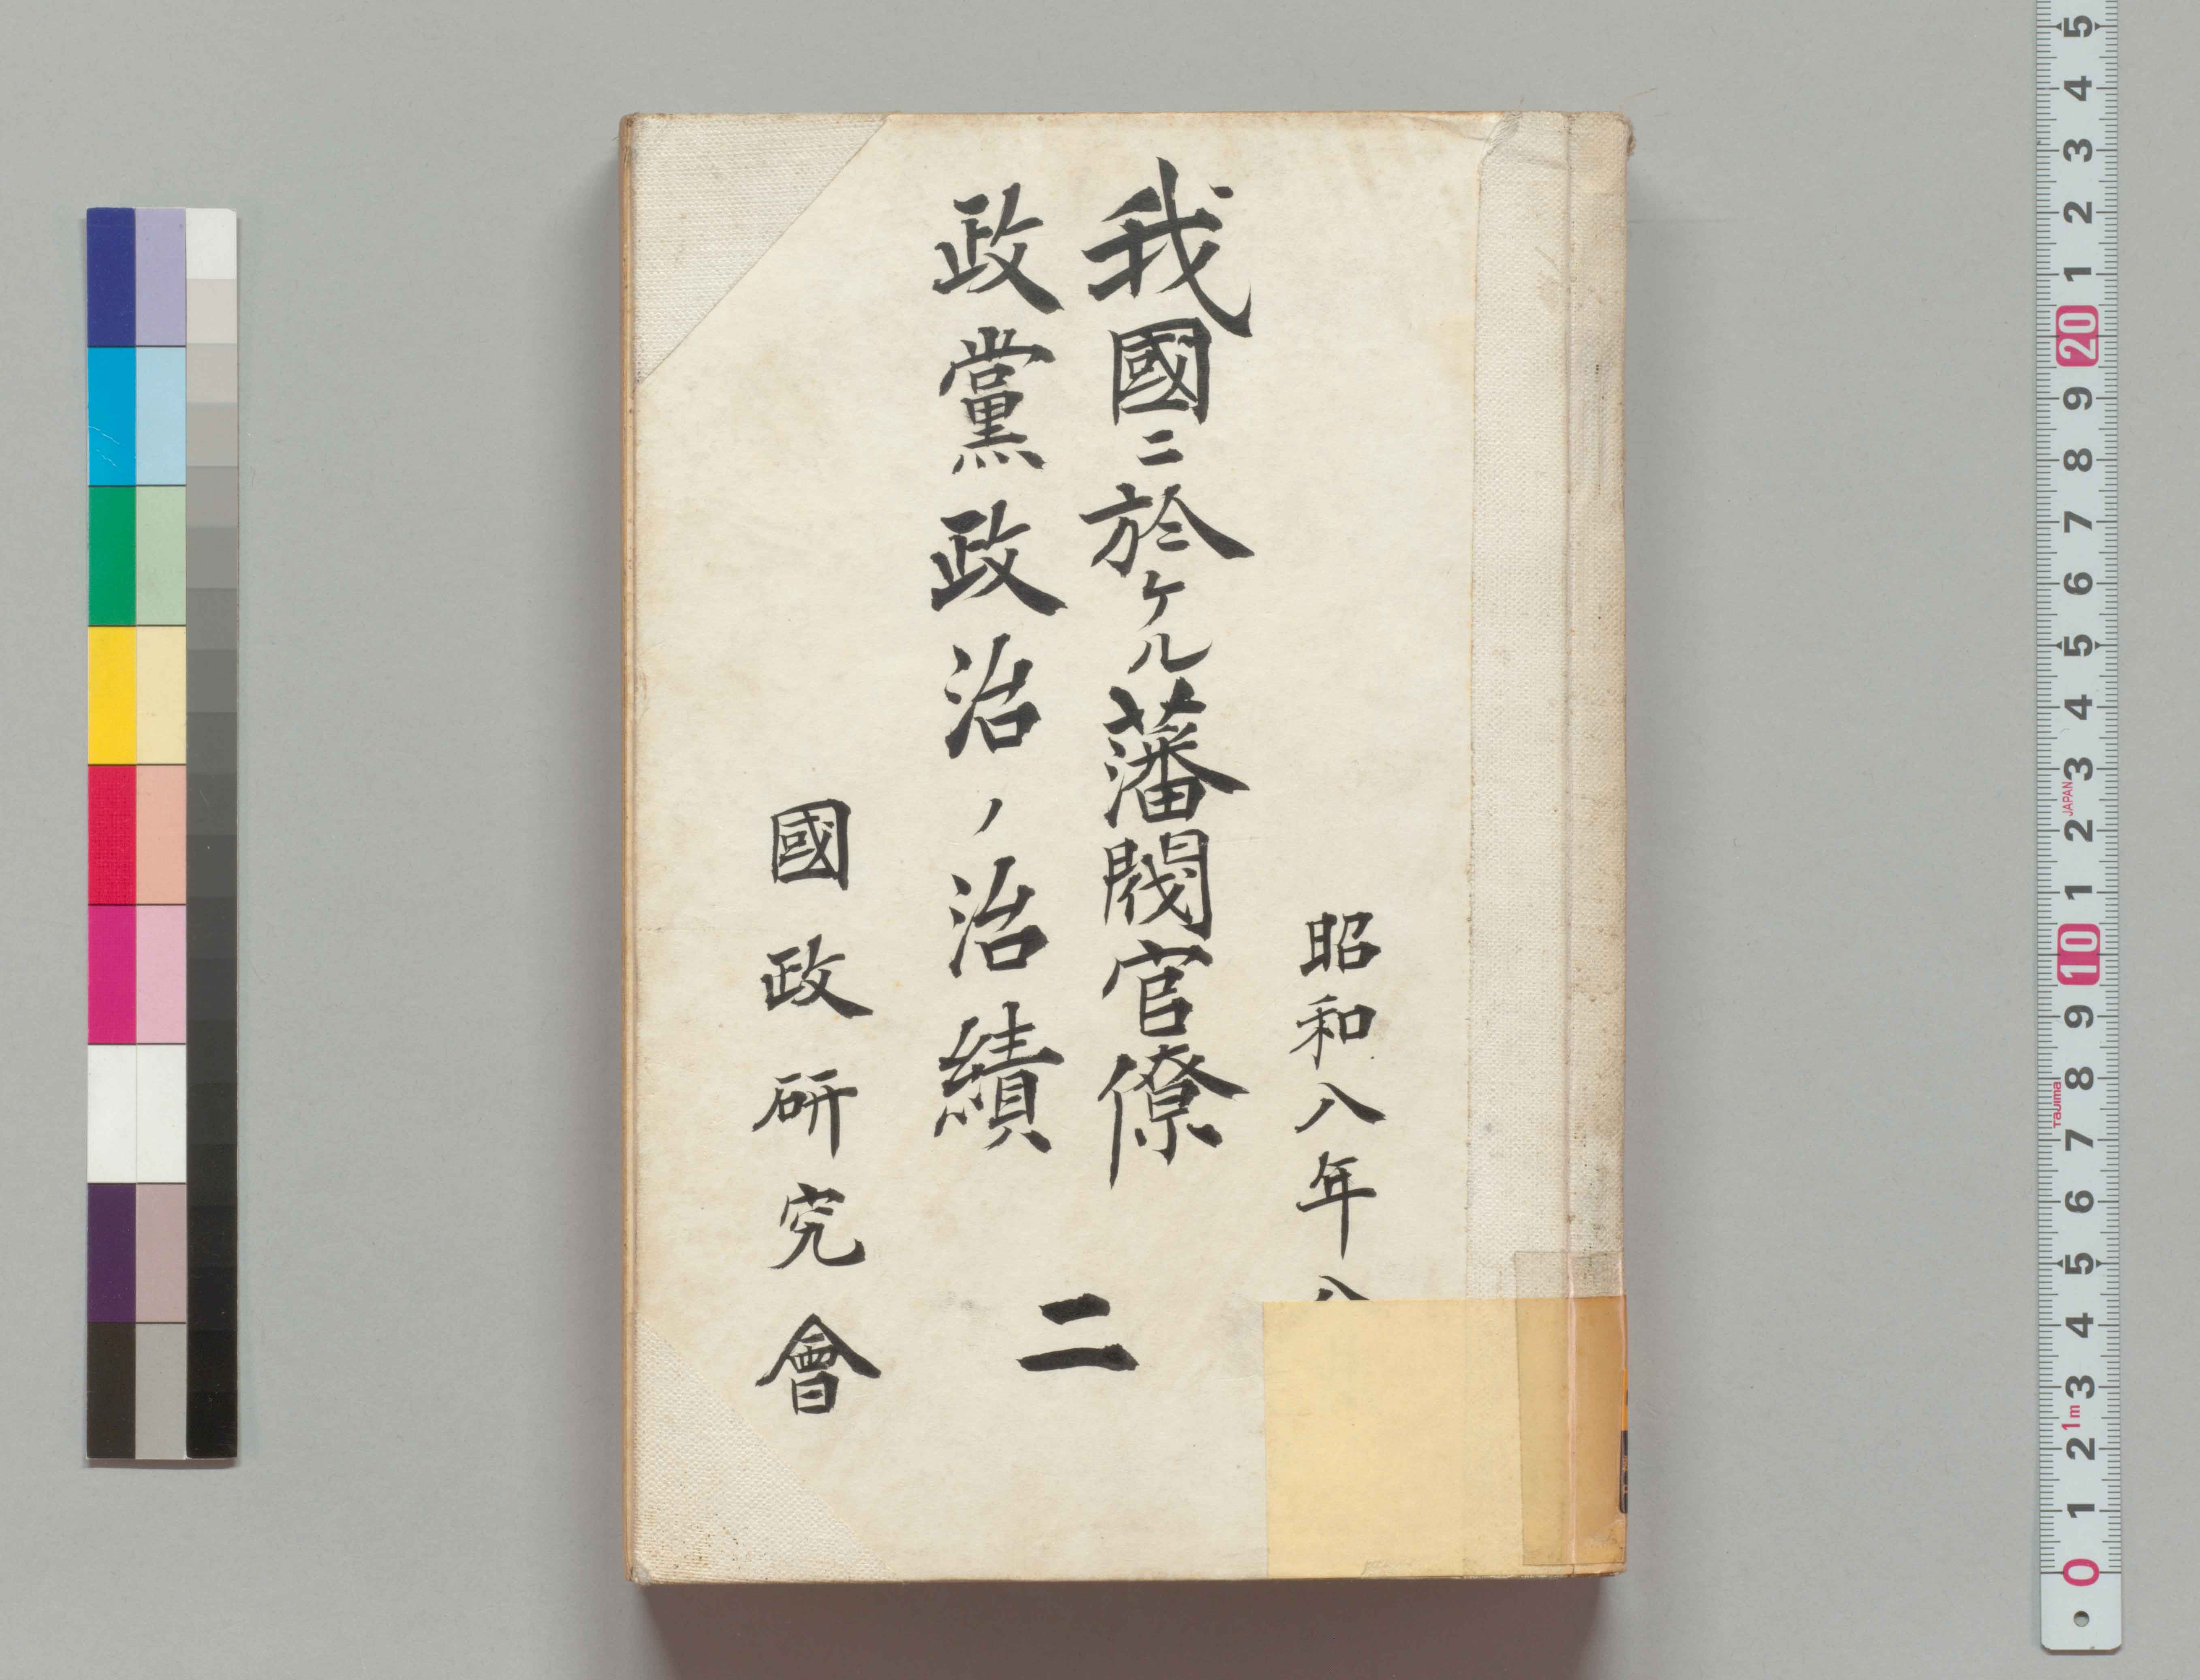 昭和八年八
我國ニ於ケル藩閥官僚
政黨政治ノ治績
二
國政研究會
5
4
3
2
1
20
9
8
7
6
5
4
3
JAPAN
2
1
10
9
8
Tajima
7
6
5
4
3
1m
2
1
0